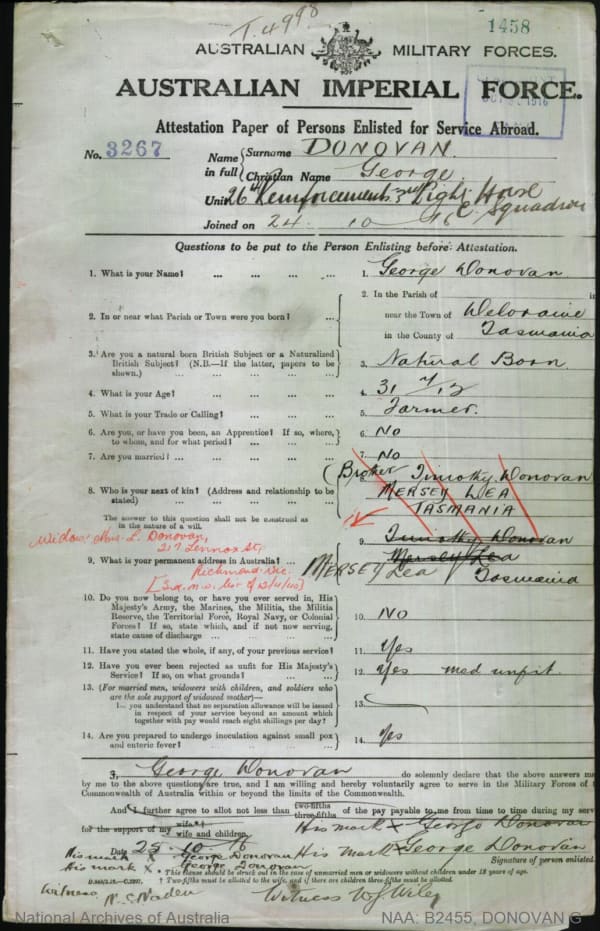 T.4998
1458
AUSTRALIAN MILITARY FORCES.
AUSTRALIAN IMPERIAL FORCE.
1916
Attestation Paper of Persons Enlisted for Service Abroad.
No. 3267
Name in full { Surname DONOVAN.
Christian Name George
Unit 26th Reinforcements 3rd Light Horse
C Squadron
Joined on 24. 10 16
Questions to be put to the Person Enlisting before Attestation.
1. What is your Name? ... ... ... ... 1. George Donovan
2. In or near what Parish or Town were you born? ... 2. In the Parish of in
near the Town of Deloraine
in the County of Tasmania
3. Are you a natural born British Subject or a Naturalized
British Subject? (N.B.—If the latter, papers to be
shown.) ... ... ... ... 3. Natural Born.
4. What is your Age? ... ... ... ... 4. 31 7/12
5. What is your Trade or Calling? ... ... ... 5. Farmer.
6. Are you, or have you been, an Apprentice? If so, where,
to whom, and for what period? ... ... ... 6. No
7. Are you married? ... ... ... ... 7. No
8. Who is your next of kin? (Address and relationship to be
stated) ... ... ... (Brother Timothy Donovan
MERSEY LEA
TASMANIA
The answer to this question shall not be construed as
in the nature of a will.
Widow: Mrs. L. Donovan,
217 Lennox St,
Richmond. Vic.
9. What is your permanent address in Australia? ... 9. Timothy Donovan
Mersey Lea
MERSEY Lea Tasmania
10. Do you now belong to, or have you ever served in, His
Majesty's Army, the Marines, the Militia, the Militia
Reserve, the Territorial Force, Royal Navy, or Colonial
Forces? If so, state which, and if not now serving,
state cause of discharge ... ... ... 10. NO
11. Have you stated the whole, if any, of your previous service? 11. Yes
12. Have you ever been rejected as unfit for His Majesty's
Service? If so, on what grounds? ... ... 12. Yes med unfit.
13. (For married men, widowers with children, and soldiers who
are the sole support of widowed mother)—
you understand that no separation allowance will be issued
in respect of your service beyond an amount which
together with pay would reach eight shillings per day? 13.
14. Are you prepared to undergo inoculation against small pox
and enteric fever? ... ... ... 14. Yes
I, George Donovan do solemnly declare that the above answers made
by me to the above questions are true, and I am willing and hereby voluntarily agree to serve in the Military Forces of the
Commonwealth of Australia within or beyond the limits of the Commonwealth.
And I further agree to allot not less than two-fifths three-fifths of the pay payable to me from time to time during my service
for the support of my wife*† wife and children. His mark X George Donovan
Date 25. 10. 16 His mark X George Donovan
His mark X George Donovan Signature of person enlisted.
His mark X George Donovan
* This clause should be struck out in the case of unmarried men or widowers without children under 18 years of age.
† Two-fifths must be allotted to the wife, and if there are children three-fifths must be allotted.
Witness N.S. Naden Witness
National Archives of Australia NAA: B2455, DONOVAN G